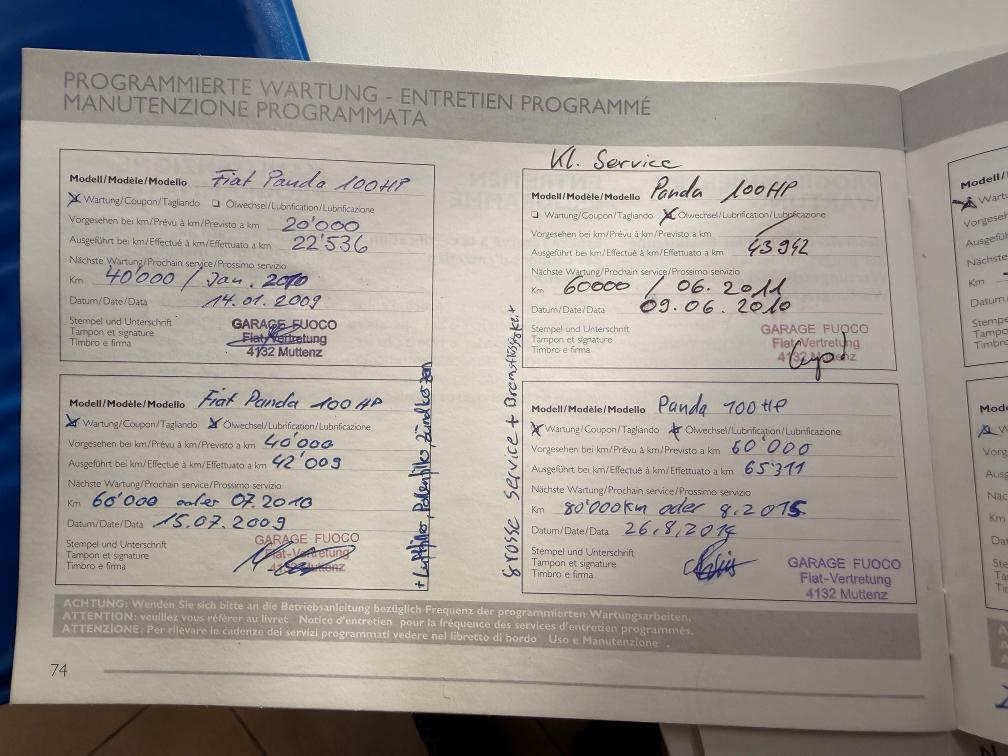 PROGRAMMIERTE WARTUNG - ENTRETIEN PROGRAMMÉ
MANUTENZIONE PROGRAMMATA
Modell/Modèle/Modello Fiat Panda 100HP
X Wartung/Coupon/Tagliando ☐ Ölwechsel/Lubrification/Lubrificazione
Vorgesehen bei km/Prévu à km/Previsto a km 20'000
Ausgeführt bei km/Effectué à km/Effettuato a km 22'536
Nächste Wartung/Prochain service/Prossimo servizio
Km 40'000 / Jan. 2010
Datum/Date/Data 14.01.2009
Stempel und Unterschrift
Tampon et signature
Timbro e firma
GARAGE FUOCO
Fiat-Vertretung
4132 Muttenz
Modell/Modèle/Modello Fiat Panda 100HP
X Wartung/Coupon/Tagliando X Ölwechsel/Lubrification/Lubrificazione
Vorgesehen bei km/Prévu à km/Previsto a km 40'000
Ausgeführt bei km/Effectué à km/Effettuato a km 42'009
Nächste Wartung/Prochain service/Prossimo servizio
Km 60'000 oder 07.2010
Datum/Date/Data 15.07.2009
Stempel und Unterschrift
Tampon et signature
Timbro e firma
GARAGE FUOCO
Fiat-Vertretung
4132 Muttenz
+ Luftfilter, Pollenfilter, Zündkerzen
Kl. Service
Modell/Modèle/Modello Panda 100HP
☐ Wartung/Coupon/Tagliando X Ölwechsel/Lubrification/Lubrificazione
Vorgesehen bei km/Prévu à km/Previsto a km
Ausgeführt bei km/Effectué à km/Effettuato a km 43942
Nächste Wartung/Prochain service/Prossimo servizio
Km 60000 / 06.2011
Datum/Date/Data 09.06.2010
Stempel und Unterschrift
Tampon et signature
Timbro e firma
GARAGE FUOCO
Fiat-Vertretung
4132 Muttenz
Grosse Service + Bremsflüssigkeit
Modell/Modèle/Modello Panda 100HP
X Wartung/Coupon/Tagliando X Ölwechsel/Lubrification/Lubrificazione
Vorgesehen bei km/Prévu à km/Previsto a km 60'000
Ausgeführt bei km/Effectué à km/Effettuato a km 65'311
Nächste Wartung/Prochain service/Prossimo servizio
Km 80'000km oder 8.2015
Datum/Date/Data 26.8.2014
Stempel und Unterschrift
Tampon et signature
Timbro e firma
GARAGE FUOCO
Fiat-Vertretung
4132 Muttenz
ACHTUNG: Wenden Sie sich bitte an die Betriebsanleitung bezüglich Frequenz der programmierten Wartungsarbeiten.
ATTENTION: veuillez vous référer au livret Notice d'entretien pour la fréquence des services d'entretien programmés.
ATTENZIONE: Per rilevare le cadenze dei servizi programmati vedere nel libretto di bordo Uso e Manutenzione .
74